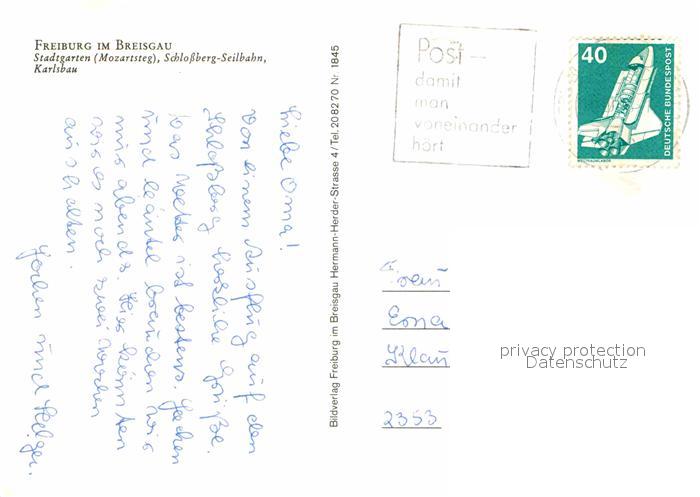 FREIBURG IM BREISGAU
Stadtgarten (Mozartsteg), Schloßberg-Seilbahn,
Karlsbau
Liebe Oma!
Von einem Ausflug auf den
Schloßberg herzliche Grüße.
Das Wetter ist bestens. Jacken
und Mäntel brauchen wir
nur abends. Hier könnten
wir es noch zwei Wochen
aushalten.
Jochen und Helga.
Bildverlag Freiburg im Breisgau Hermann-Herder-Strasse 4/Tel. 208270 Nr. 1845
Post –
damit
man
voneinander
hört
40
DEUTSCHE BUNDESPOST
WELTRAUMLABOR
Frau
Erna
Klau
2353
privacy protection
Datenschutz